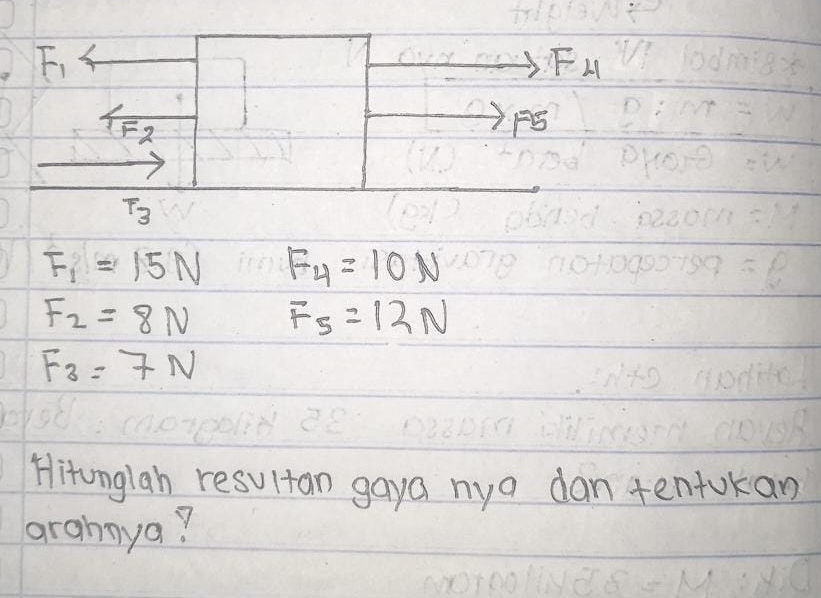 F1 F4
F2 F5
F3
F1 = 15 N F4 = 10 N
F2 = 8 N F5 = 12 N
F3 = 7 N
Hitunglah resultan gaya nya dan tentukan
arahnya?